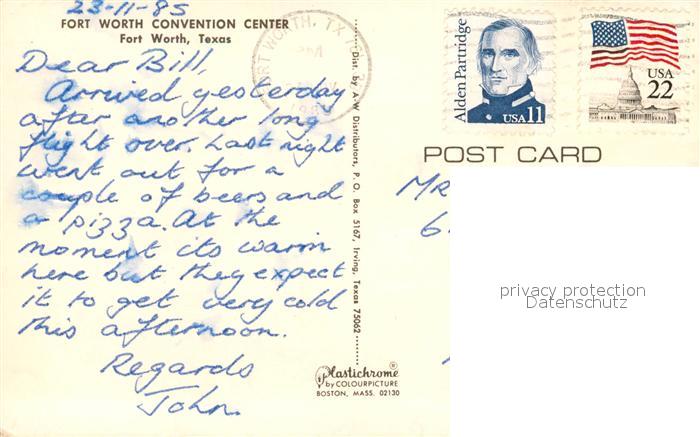 23-11-85
FORT WORTH CONVENTION CENTER
Fort Worth, Texas
Dear Bill,
Arrived yesterday
after another long
flight over. Last night
went out for a
couple of beers and
a pizza. At the
moment its warm
here but they expect
it to get very cold
this afternoon.
Regards
John.
Dist. by A-W Distributors, P. O. Box 5167, Irving, Texas 75062
Plastichrome®
by COLOURPICTURE
BOSTON, MASS. 02130
FORT WORTH, TX
PM
Alden Partridge
USA 11
USA
22
POST CARD
MR
6
privacy protection
Datenschutz